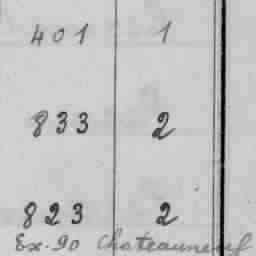 401 1
833 2
823 2
Ex. 90 Chateauneuf